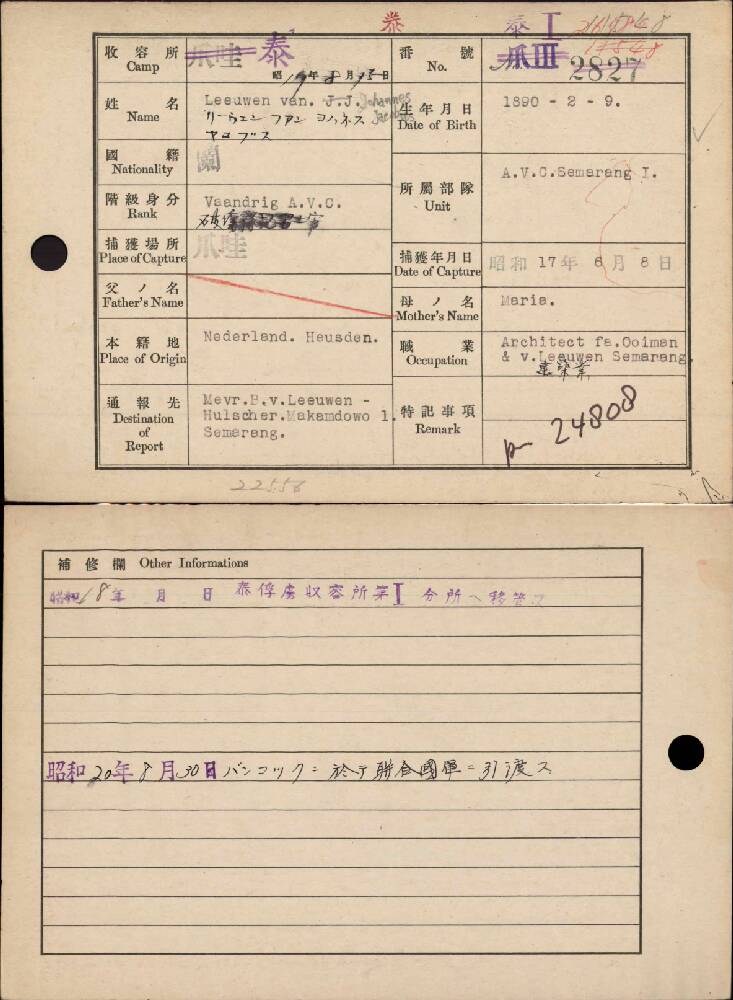 泰 泰 I
收容所 爪哇 泰
Camp
昭 17年8月15日
番號 爪III 2827
No.
姓名 Leeuwen van. J.J. Johannes Jacobus
Name
ファン ヨハネス
ヤコブス
生年月日 1890 - 2 - 9.
Date of Birth
國籍 蘭
Nationality
所屬部隊 A.V.C.Semarang I.
Unit
階級身分 Vaandrig A.V.C.
Rank
捕獲場所 爪哇
Place of Capture
捕獲年月日 昭和 17年 6月 8日
Date of Capture
父ノ名
Father's Name
母ノ名 Maria.
Mother's Name
本籍地 Nederland. Heusden.
Place of Origin
職業 Architect fa.Ooiman
Occupation & v.Leeuwen Semarang.
建築業
通報先 Mevr.B.v.Leeuwen -
Destination Hulscher.Makamdowo 1.
of Semarang.
Report
特記事項
Remark
24808
22558
補修欄 Other Informations
昭和18年 月 日 泰俘虜収容所第I分所へ移管ス
昭和20年8月30日バンコックニ於テ聯合國軍ニ引渡ス